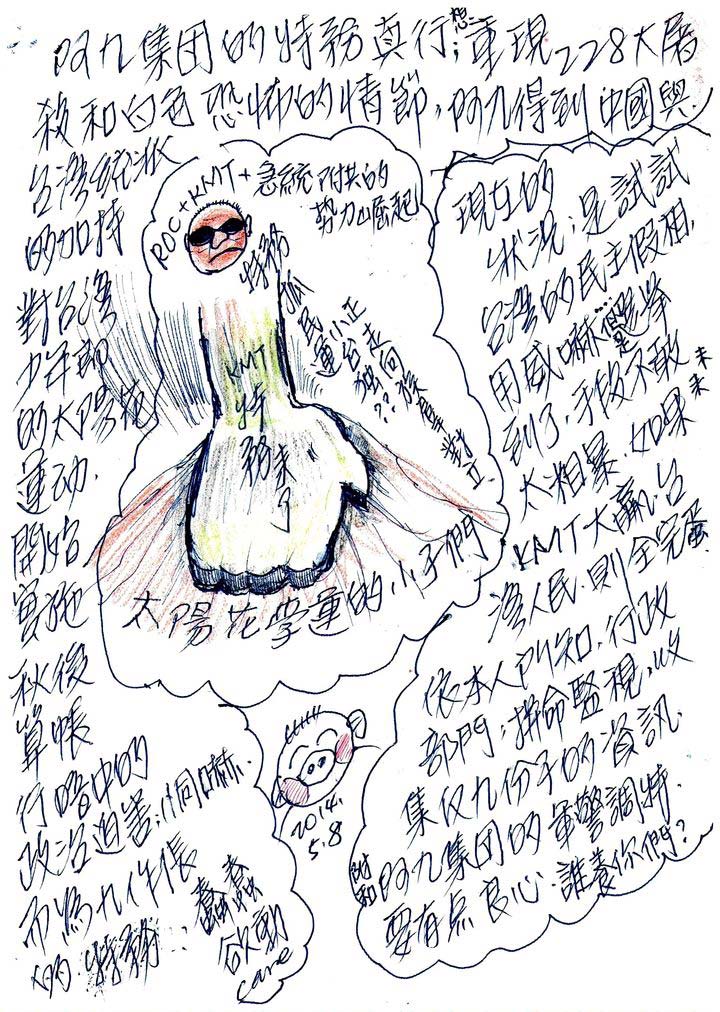 阿九集团的特務真行;想重現228大屠
殺和白色恐怖的情節,阿九得到中國與
台灣統派
的加持
對台灣
少年郎
的太陽花
運动.
開始
實施
秋後
算帳
行暗中的
政治迫害;恫嚇.
而為九作倀
的特務:蠢蠢
欲動
care
ROC+KMT+急統附共的
勢力崛起
特務
抓民運小正
台獨走向
??族羣對立
KMT
特
務
來
了
太陽花學運的小子們
2014.
5.8
現在的
狀況;是試試
台灣的民主假相,
用威嚇…但是選举
到了,手段不敢
太粗暴.如果未來
KMT大贏.台
灣人民.則全完蛋.
依本人所知.行政
部門;拼命監視,收
集仅九份子的資訊.
附和阿九集团的軍警調特.
要有点良心.誰養你們?